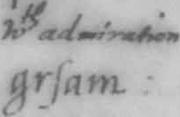 wth admiration
grſam :